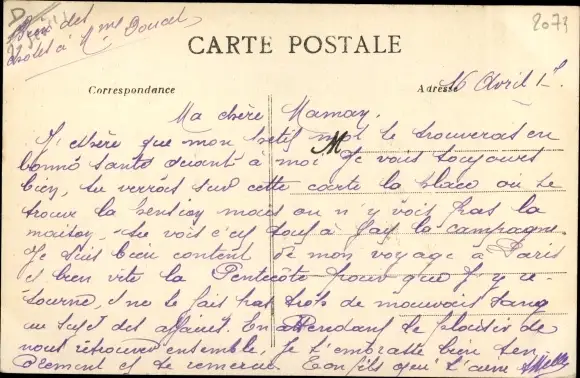 Bien des
choses à Mme Doucet
2073
CARTE POSTALE
Correspondance
Adresse
16 Avril
Ma chère Maman.
J'espère que mon petit mot te trouveras en
bonne santé quant à moi Je vais toujours
bien, tu verras sur cette carte la place où se
trouve la pension mais on n'y vois pas la
maison, tu vois c'est tout à fait la campagne
Je suis bien content de mon voyage à Paris
et bien vite la Pentecôte pour que j'y re-
tourne, et ne te fais pas trop de mauvais sang
au sujet des affaires. En attendant le plaisir de
nous retrouver ensemble, Je t'embrasse bien ten
drement et te remercie. Ton fils qui t'aime